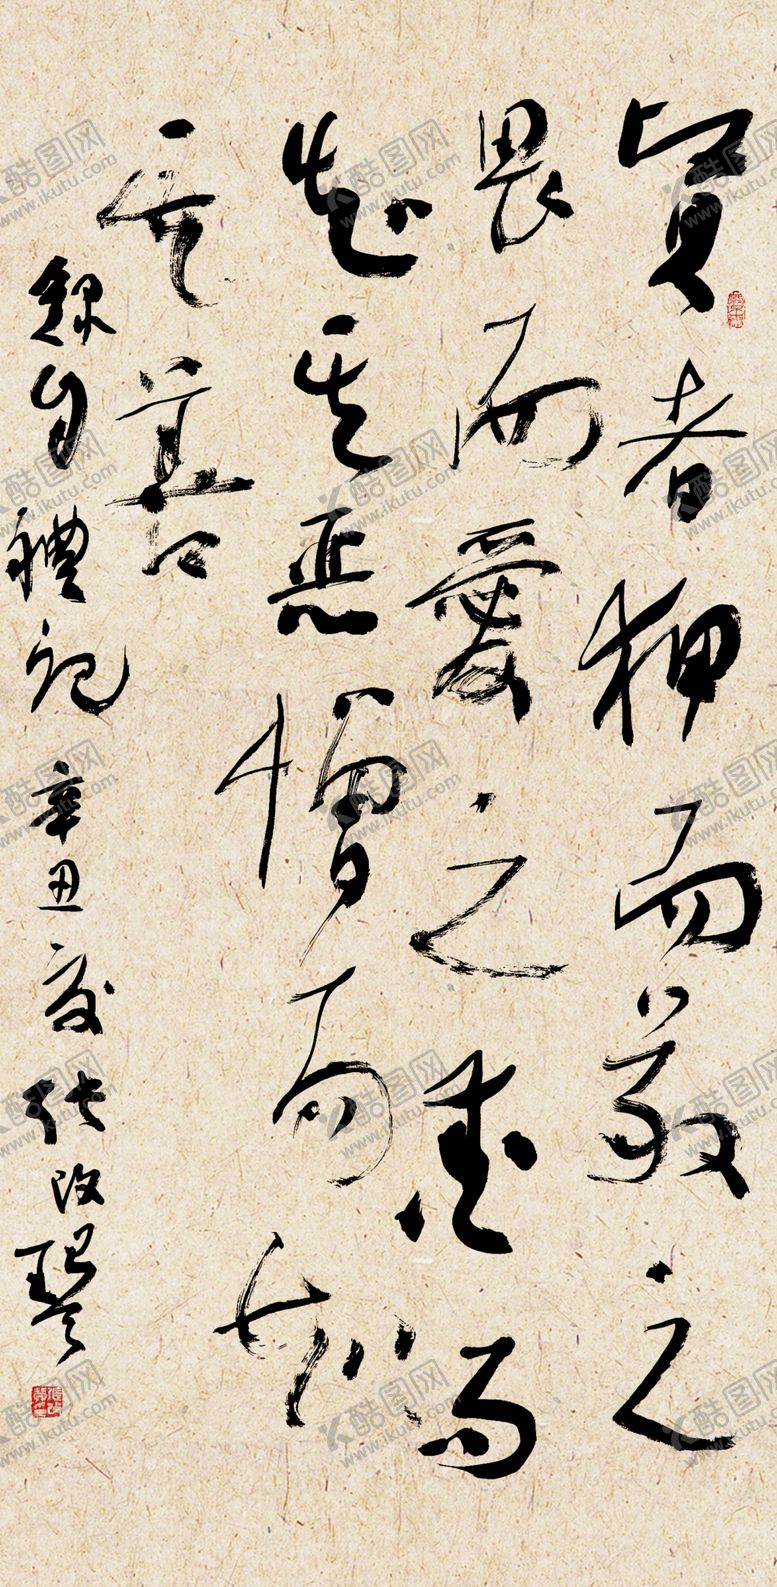 賢者狎而敬之
畏而愛之愛而
知其惡憎而知
其善
錄自禮記辛丑夏張改琴
酷图网
www.ikutu.com